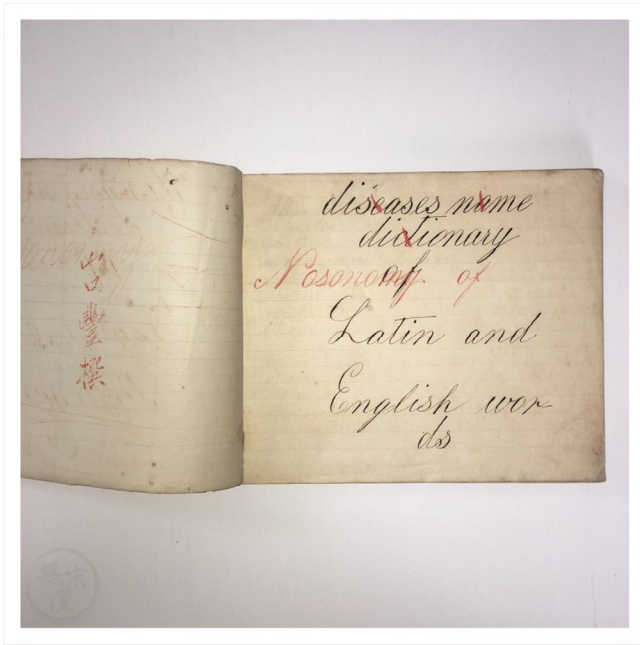 山口豐撰
diseases name
dictionary
of
Nosonomy. of
Latin and
English wor-
ds